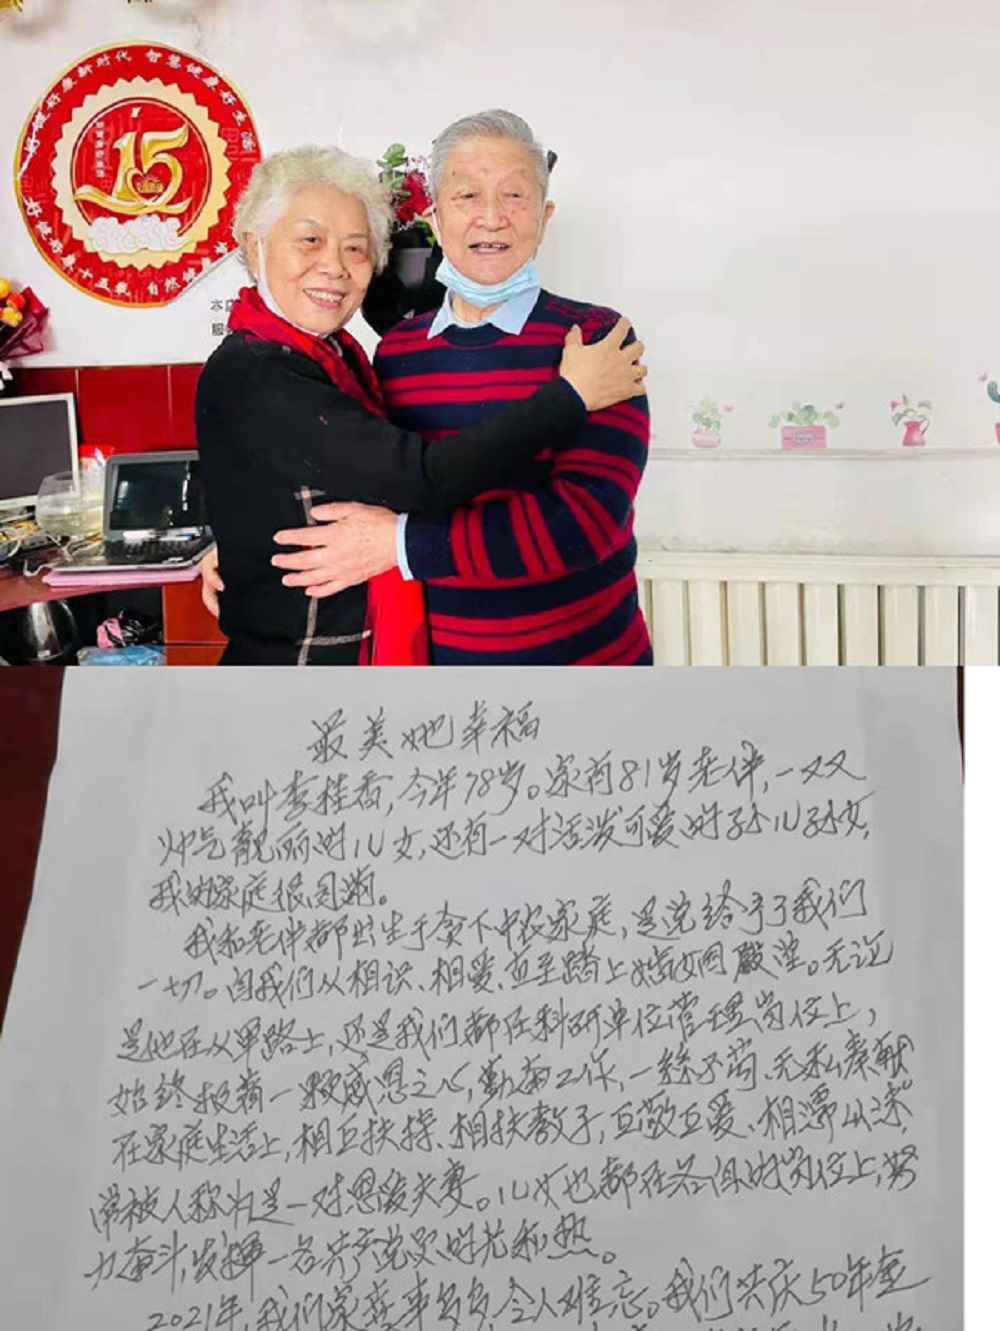 好健好康新时代 智慧健康好生活
15
好健好康十五载 自然健康
本店
服
最美她幸福
我叫李桂香,今年78岁。家有81岁老伴,一双又
帅气靓丽的儿女,还有一对活泼可爱的孙儿孙女,
我的家庭很圆满。
我和老伴都出生于贫下中农家庭,是党给予了我们
一切。自我们从相识、相爱、直至踏上婚姻殿堂。无论
是他在从军路上,还是我们都在科研单位管理岗位上,
始终抱着一颗感恩之心,勤奋工作,一丝不苟、无私奉献
在家庭生活上,相互扶持、相扶教子,互敬互爱、相濡以沫,
常被人称为是一对恩爱夫妻。儿女也都在各自的岗位上,努
力奋斗,发挥一名共产党员的光和热。
2021年,我们家喜事多多,令人难忘。我们共庆50年金